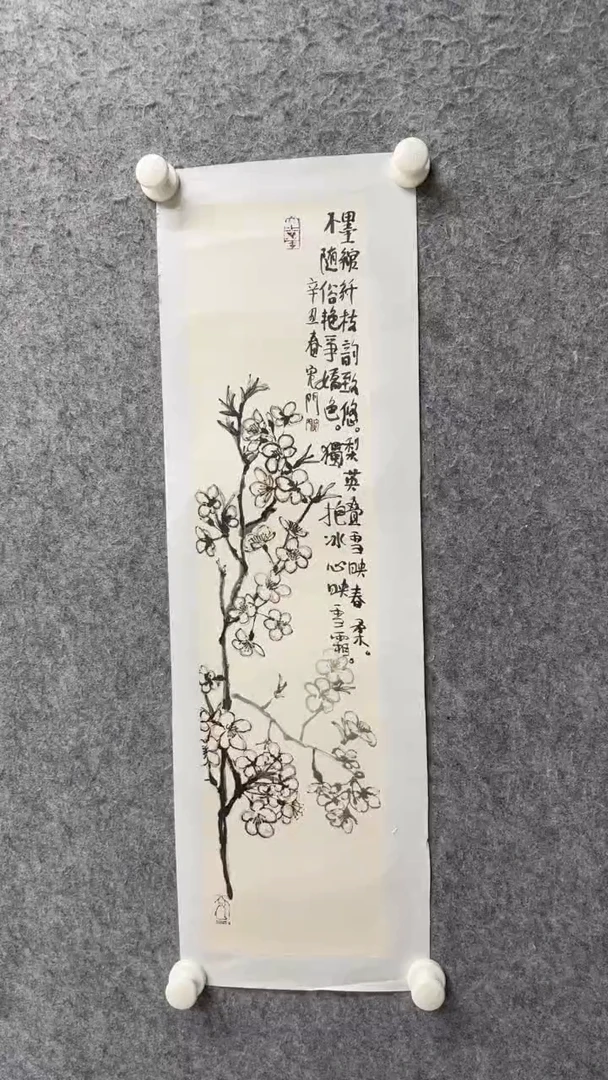 墨縮纤枝韵致悠。梨英叠雪映春柔。
不随俗艳争嬌色。獨抱冰心映雪霜。
辛丑春鬼門